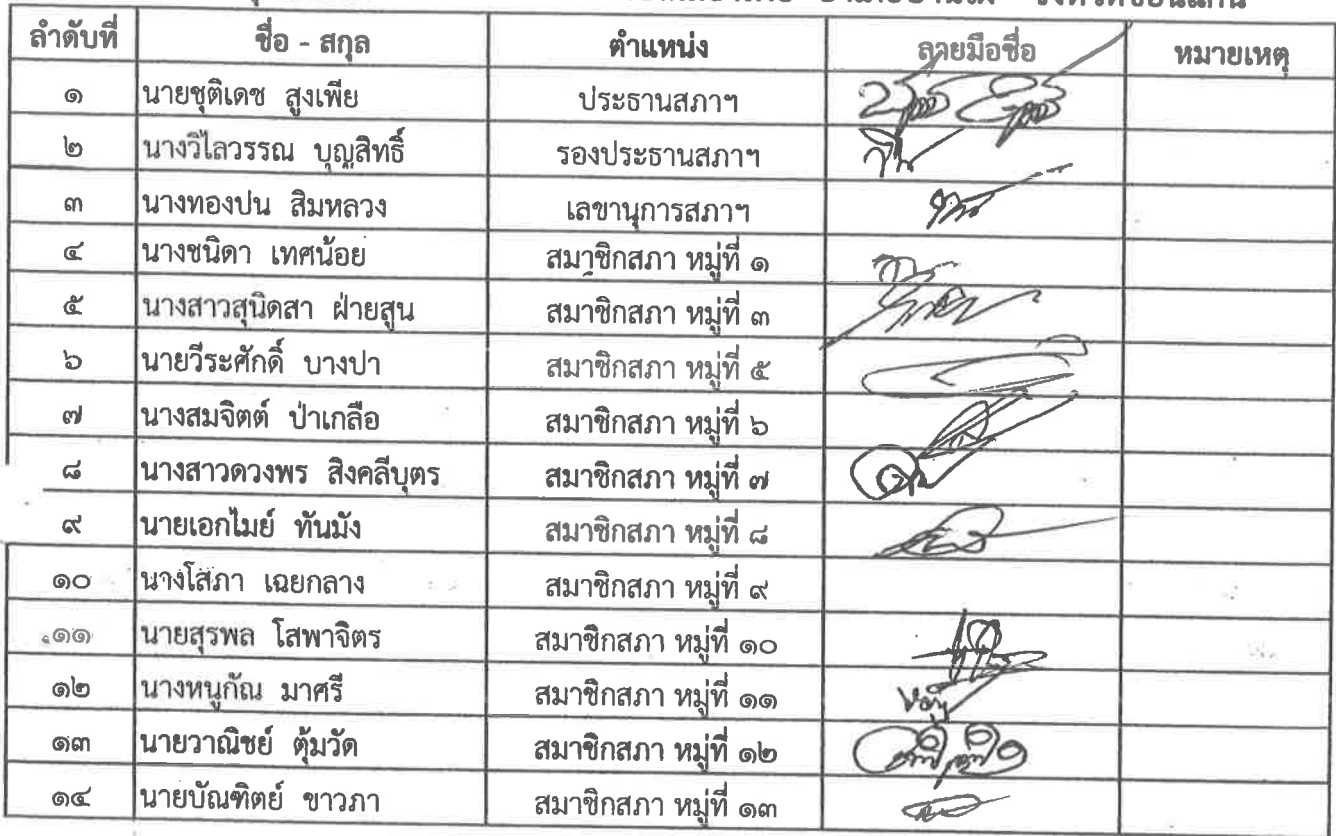 ลำดับที่ ชื่อ - สกุล ตำแหน่ง ลายมือชื่อ หมายเหตุ
๑ นายชุติเดช สูงเพีย ประธานสภาฯ
๒ นางวิไลวรรณ บุญสิทธิ์ รองประธานสภาฯ
๓ นางทองปน สิมหลวง เลขานุการสภาฯ
๔ นางชนิดา เทศน้อย สมาชิกสภา หมู่ที่ ๑
๕ นางสาวสุนิดสา ฝ่ายสูน สมาชิกสภา หมู่ที่ ๓
๖ นายวีระศักดิ์ บางปา สมาชิกสภา หมู่ที่ ๕
๗ นางสมจิตต์ ป่าเกลือ สมาชิกสภา หมู่ที่ ๖
๘ นางสาวดวงพร สิงคลีบุตร สมาชิกสภา หมู่ที่ ๗
๙ นายเอกไมย์ ทันมัง สมาชิกสภา หมู่ที่ ๘
๑๐ นางโสภา เฉยกลาง สมาชิกสภา หมู่ที่ ๙
๑๑ นายสุรพล โสพาจิตร สมาชิกสภา หมู่ที่ ๑๐
๑๒ นางหนูกัณ มาศรี สมาชิกสภา หมู่ที่ ๑๑
๑๓ นายวาณิชย์ ตุ้มวัด สมาชิกสภา หมู่ที่ ๑๒
๑๔ นายบัณฑิตย์ ขาวภา สมาชิกสภา หมู่ที่ ๑๓